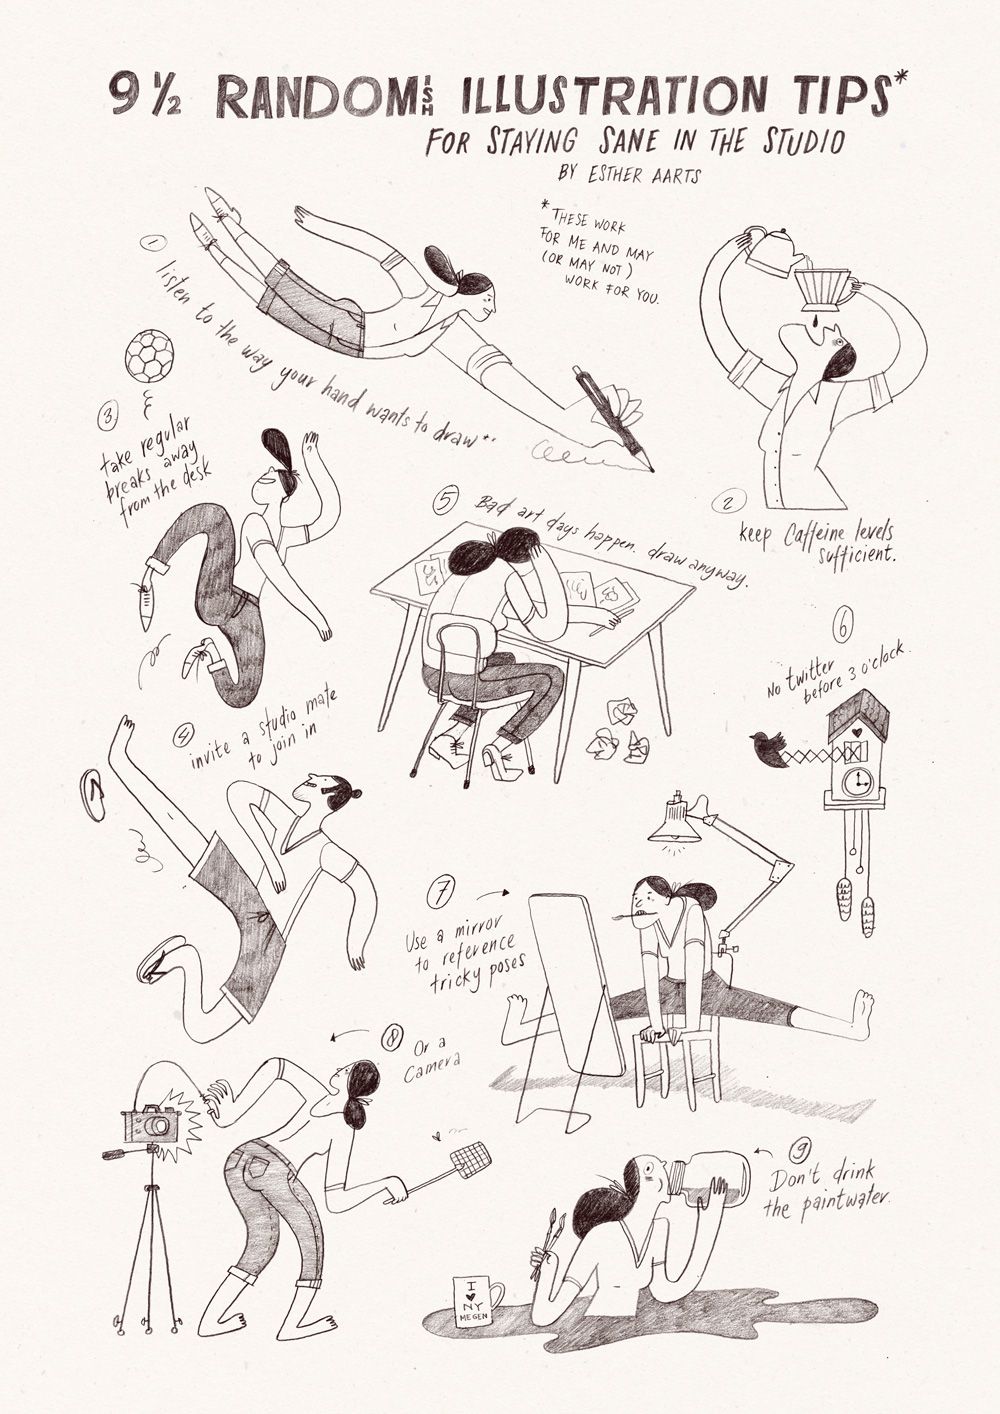 9 ½ RANDOMISH ILLUSTRATION TIPS*
FOR STAYING SANE IN THE STUDIO
BY ESTHER AARTS
* THESE WORK
FOR ME AND MAY
(OR MAY NOT)
WORK FOR YOU.
1
listen to the way your hand wants to draw
2
keep Caffeine levels
sufficient.
3
take regular
breaks away
from the desk
4
invite a studio mate
to join in
5
Bad art days happen. draw anyway.
6
No twitter
before 3 o'clock.
7
Use a mirror
to reference
tricky poses
8
Or a
Camera
9
Don't drink
the paintwater.
I
♥
NY
MEGEN